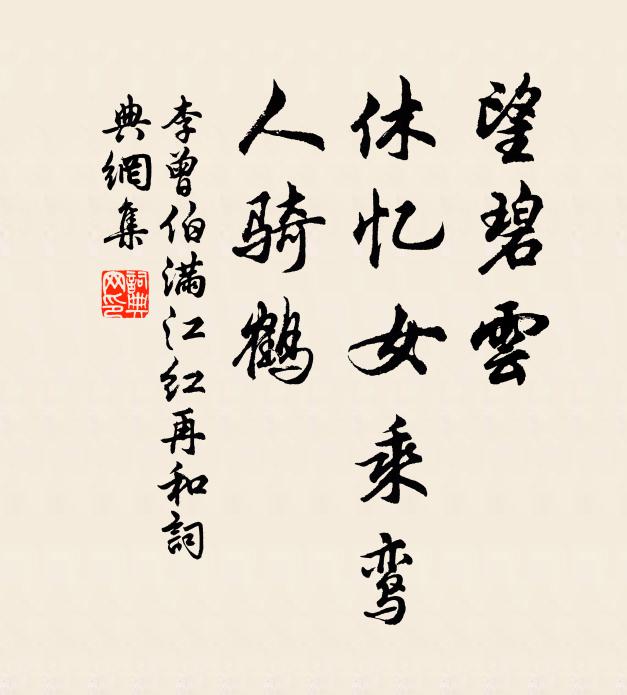 望碧雲
休忆女乘鸾
人骑鹤
李曾伯满江红再和詞
典網集
詞典
网印